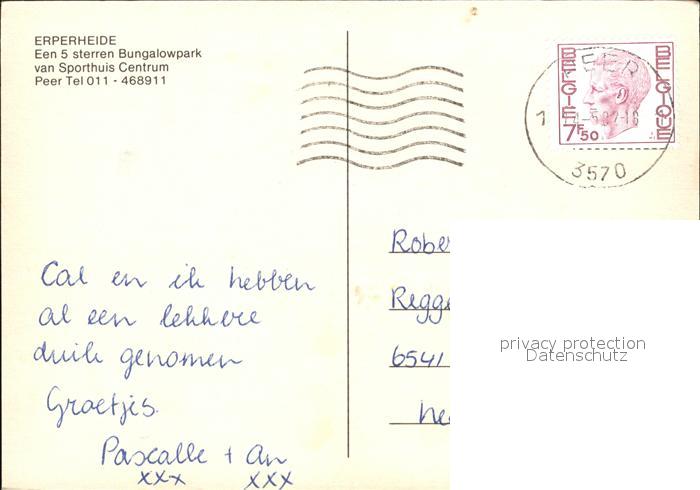 ERPERHEIDE
Een 5 sterren Bungalowpark
van Sporthuis Centrum
Peer Tel 011 - 468911
BELGIE
BELGIQUE
7F50
PEER
3570
Cal en ik hebben
al een lekkere
duik genomen
Groetjes.
Pascalle + An
xxx xxx
Rober
Regge
6541
Ne
privacy protection
Datenschutz